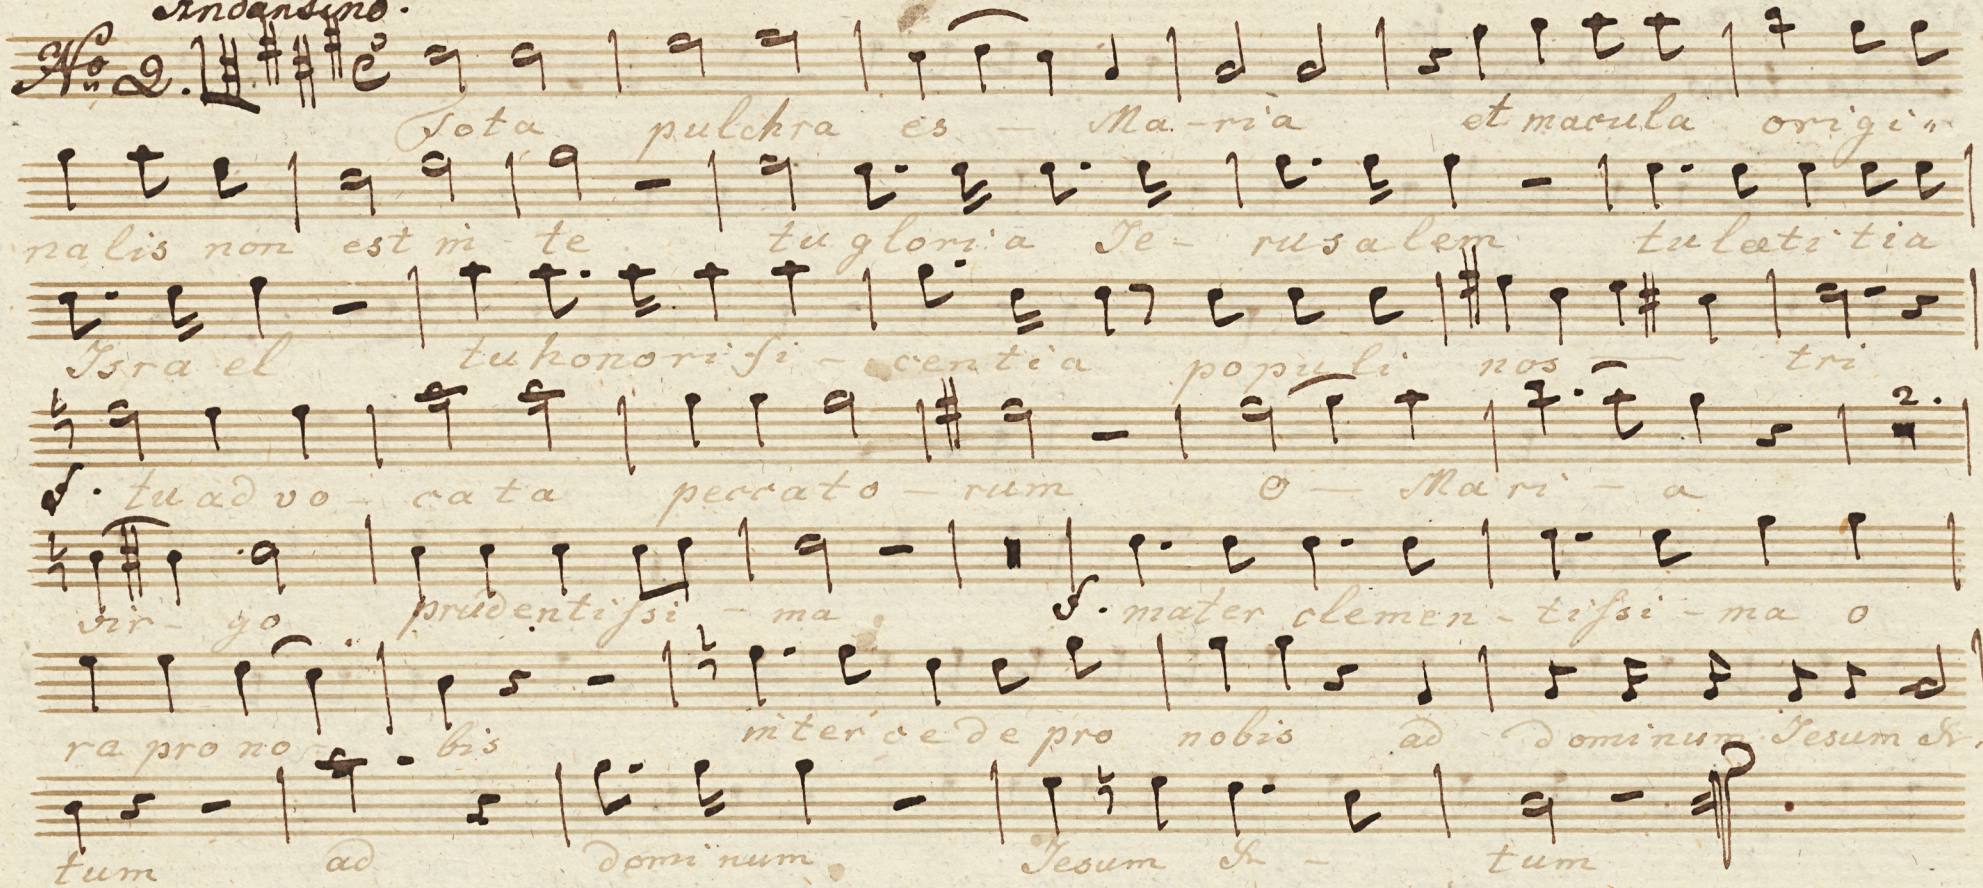 Andantino.
No 2.
Tota pulchra es - Ma-ria et macula origi„
nalis non est in te tu gloria Je- rusalem tu lætitia
Israel tu honorifi - centia populi nos - tri
f. tu advo - cata peccato - rum O - Mari - a 2.
vir - go prudentiſsi - ma, f. mater clemen - tiſsi - ma o
ra pro no bis intercede pro nobis ad dominum Jesum
tum ad dominum. Jesum - tum